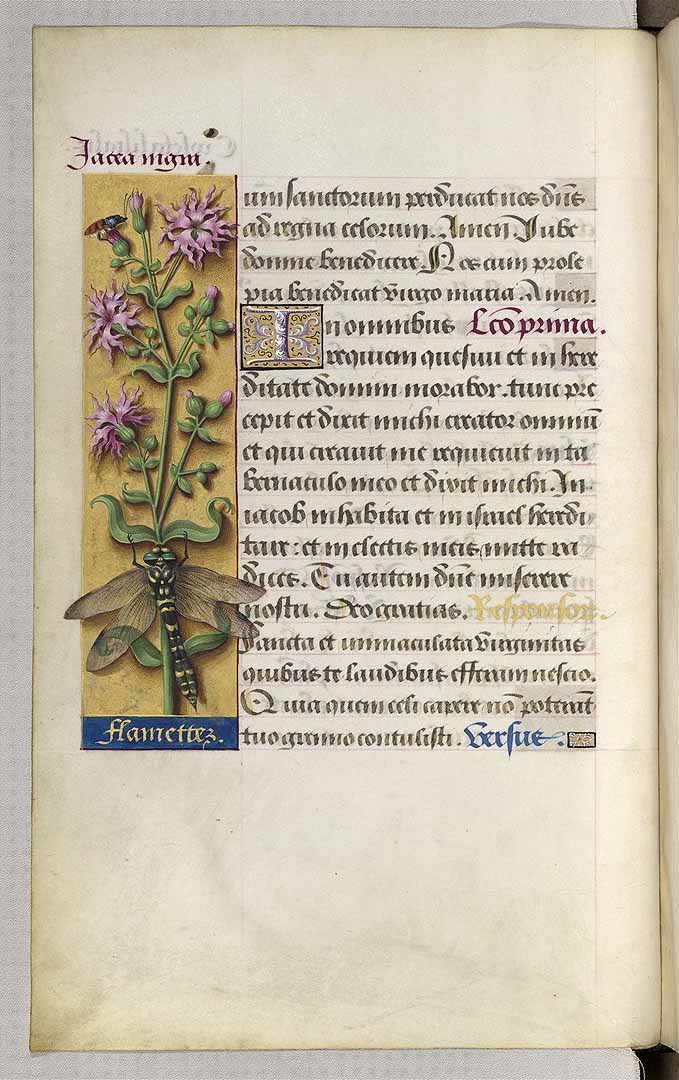 Jacea nigra.
um sanctorum perducat nos dn̄s
ad regna celorum. Amen. Jube
domne benedicere. Nos cum prole
pia benedicat virgo maria. Amen.
In omnibus Lcō prima.
requiem quesiui et in here
ditate domini morabor. tunc pre
cepit et dixit michi creator omniū
et qui creauit me requieuit in ta
bernaculo meo et dixit michi. In
iacob inhabita et in israel heredi
tare: et in electis meis mitte ra
dices. Tu autem dn̄e miserere
nostri. Deo gratias. Responsor.
Sancta et immaculata virginitas
quibus te laudibus efferam nescio.
Quia quem celi capere nō poterāt
tuo gremio contulisti. Versus.
flamettez.